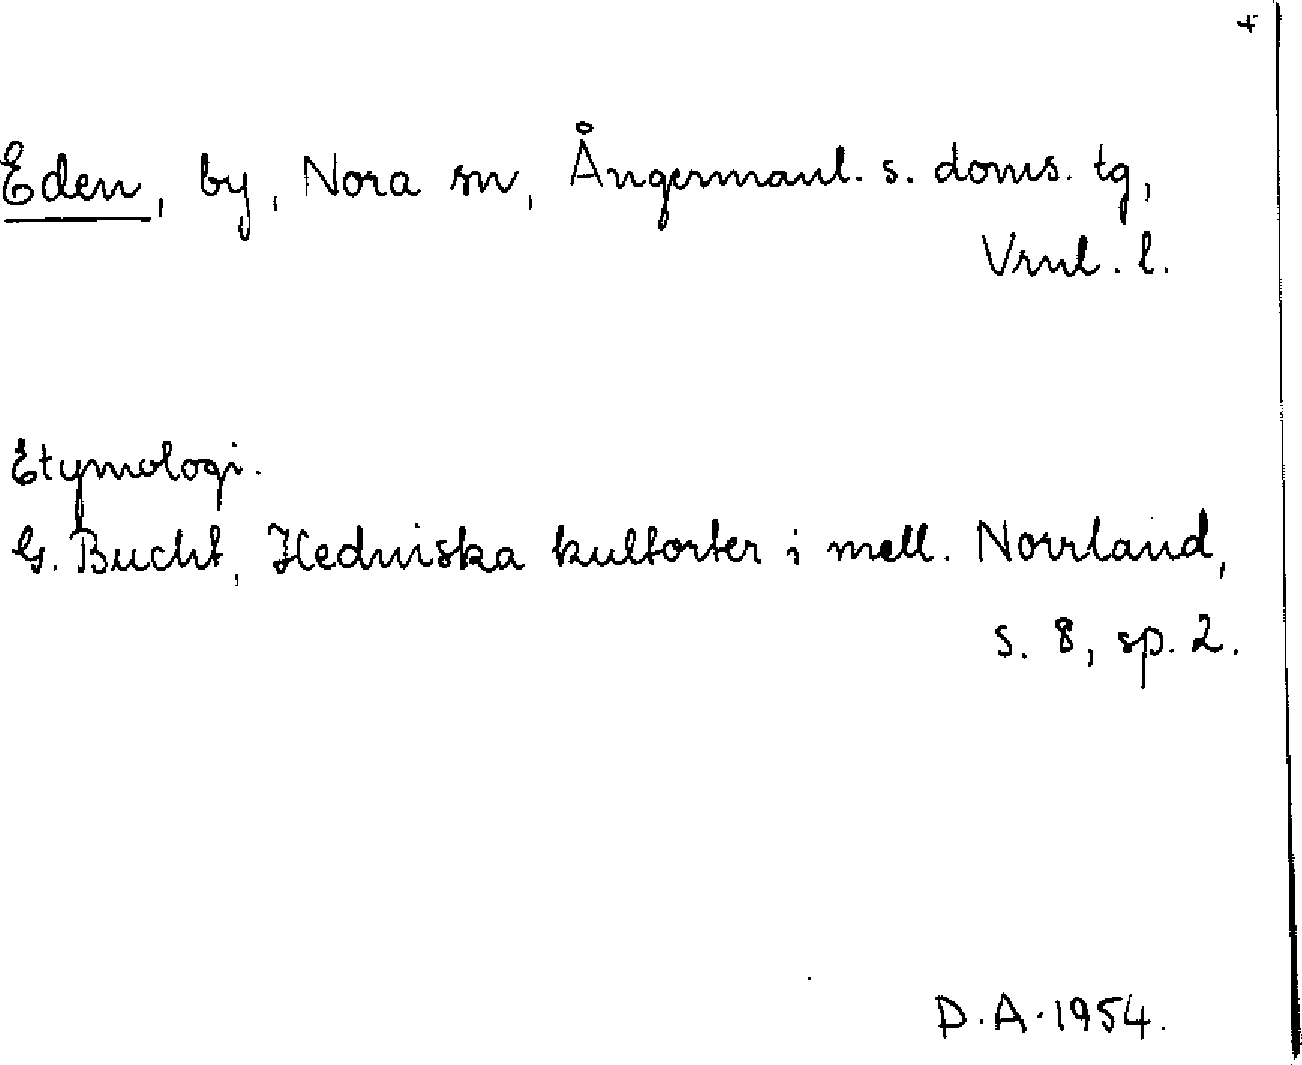 Eden, by, Nora sn, Ångermanl. s. doms. tg,
Vrnl. l.
Etymologi.
G. Bucht, Hedniska kultorter i mell. Norrland,
s. 8, sp. 2.
D.A. 1954.